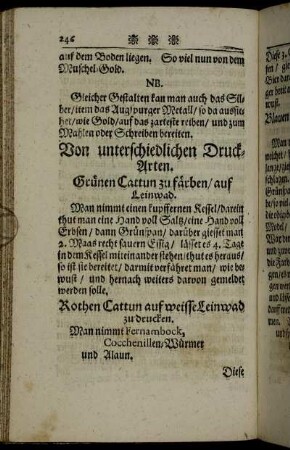 246 * * *
auf dem Boden liegen. So viel nun von dem
Muschel-Gold.
NB.
Gleicher Gestalten kan man auch das Sil-
ber/item das Augspurger Metall/so da aussie-
het/wie Gold/auf das zarteste reiben/und zum
Mahlen oder Schreiben bereiten.
Von unterschiedlichen Druck-
Arten.
Grünen Cattun zu färben/auf
Leinwad.
Man nimmt einen kupffernen Kessel/darein
thut man eine Hand voll Saltz/eine Hand voll
Erbsen/dann Grünspan/darüber giesset man
2. Maas recht sauern Essig/lässet es 4. Tage
in dem Kessel miteinander stehen/thut es heraus/
so ist sie bereitet/darmit verfähret man/wie be-
wust/und hernach weiters darvon gemeldet
werden solle.
Rothen Cattun auf weisse Leinwad
zu drucken.
Man nimmt Fernambock,
Cocchenillen/Würmer
und Alaun.
Diese